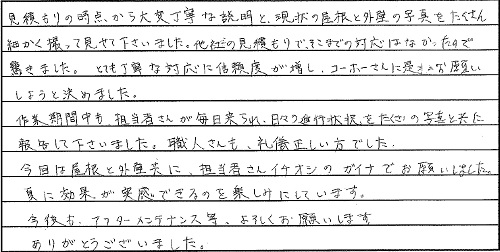 見積もりの時点から大変丁寧な説明と、現状の屋根と外壁の写真をたくさん
細かく撮って見せて下さいました。他社の見積もりでそこまでの対応はなかったので
驚きました。とても丁寧な対応に信頼度が増し、コーホーさんに是非お願い
しようと決めました。
作業期間中も、担当者さんが毎日来られ、日々の進行状況をたくさんの写真と共に
報告して下さいました。職人さんも、礼儀正しい方でした。
今回は屋根と外壁共に、担当者さんイチオシのガイナでお願いしました。
夏に効果が実感できるのを楽しみにしています。
今後も、アフターメンテナンス等、よろしくお願いします
ありがとうございました。